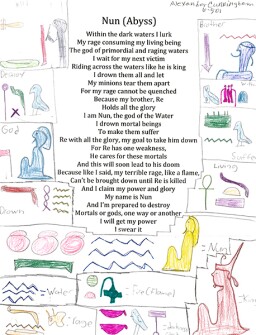 Alexander Cunningham
Nun (Abyss)
Brother
Within the dark waters I lurk
My rage consuming my living being
The god of primordial and raging waters
I wait for my next victim
Riding across the waters like he is king
I drown them all and let
My minions tear them apart
For my rage cannot be quenched
Because my brother, Re
Holds all the glory
I am Nun, the god of the Victim
I drown mortal beings
To make them suffer
Re with all the glory, my goal to take him down
For Re has one weakness,
He cares for these mortals
And this will soon lead to his doom
Because like I said, my terrible rage, like a flame,
Can't be brought down until Re is killed
And I claim my power and glory
My name is Nun
And I'm prepared to destroy
Mortals or gods, one way or another
I will get my power
I swear it
God
Living
Drown
=Nun
=Water
=Fire(Flame)
=Rage